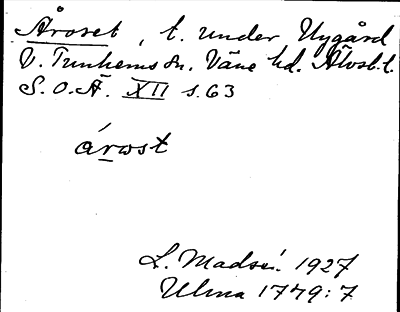 Åroset, t. under Nygård
V. Tunhems sn. Väne hd. Älvsb. l.
S.O.Ä. XII s. 63
árωst
L. Madsén. 1927
Ulma 1779:7